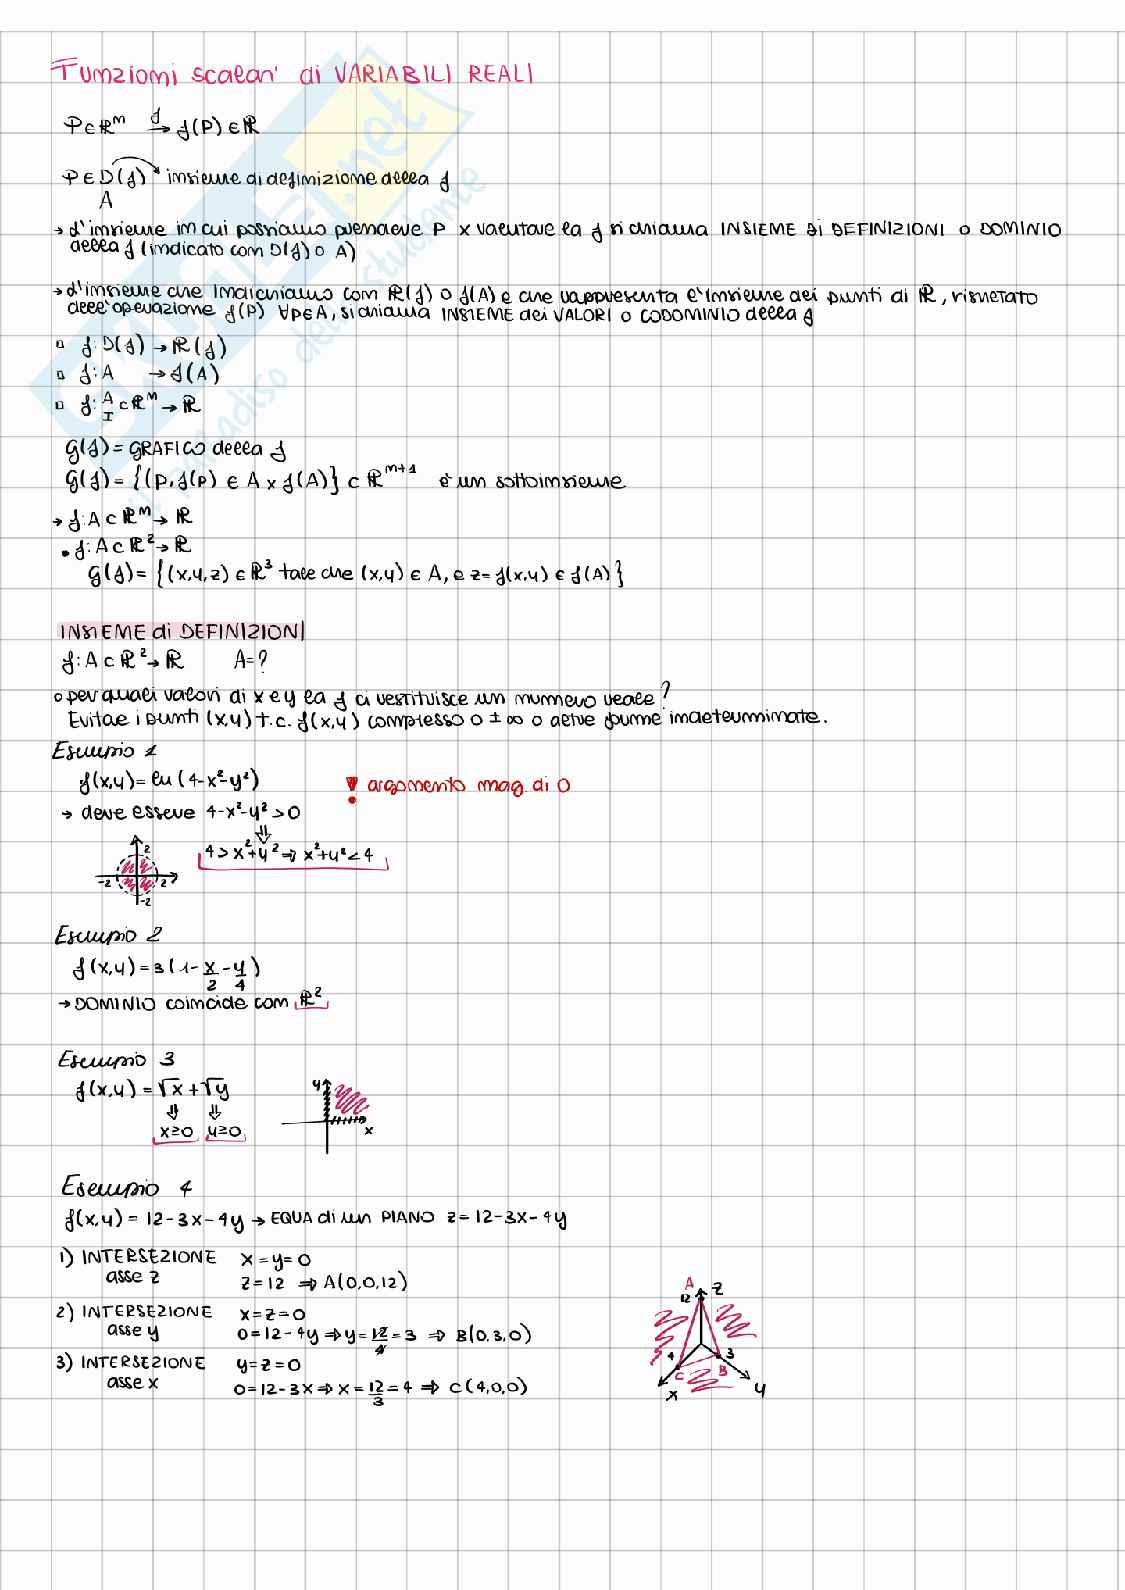 Funzioni scalari di VARIABILI REALI
P∈ℝⁿ →f f(P)∈ℝ
P∈D(f) insieme di definizione della f
A
→ L'insieme in cui possiamo prendere P x valutare la f si chiama INSIEME di DEFINIZIONI O DOMINIO
della f (indicato con D(f) o A)
→ L'insieme che indichiamo con ℝ(f) o f(A) e che rappresenta l'insieme dei punti di ℝ, risnetato
dell'operazione f(P) ∀P∈A, si chiama INSIEME dei VALORI O CODOMINIO della f
▫ f: D(f) → ℝ(f)
▫ f: A → f(A)
▫ f: A ⊂ ℝⁿ → ℝ
I
G(f) = GRAFICO della f
G(f) = {(P, f(P) ∈ A x f(A)} ⊂ ℝⁿ⁺¹ è un sottoinsieme
→ f: A ⊂ ℝⁿ → ℝ
• f: A ⊂ ℝ² → ℝ
G(f) = {(x,y,z) ∈ ℝ³ tale che (x,y) ∈ A, e z = f(x,y) ∈ f(A)}
INSIEME di DEFINIZIONI
f: A ⊂ ℝ² → ℝ A=?
o per quali valori di x e y la f ci restituisce un numero reale?
Evitae i punti (x,y) t.c. f(x,y) complesso o ±∞ o altre forme indeterminate.
Esempio 1
f(x,y) = ln (4-x²-y²) ! argomento mag. di 0
→ deve essere 4-x²-y²>0
⇓
4>x²+y² ⇒ x²+y²<4
2
-2 2
-2
Esempio 2
f(x,y) = 3(1- x/2 - y/4)
→ DOMINIO coincide con ℝ²
Esempio 3
f(x,y) = √x + √y
⇓ ⇓
x≥0 y≥0
y
x
Esempio 4
f(x,y) = 12-3x-4y → EQUA di un PIANO z=12-3x-4y
1) INTERSEZIONE x=y=0
asse z z=12 ⇒ A(0,0,12)
2) INTERSEZIONE x=z=0
asse y 0=12-4y ⇒ y=12/4=3 ⇒ B(0,3,0)
3) INTERSEZIONE y=z=0
asse x 0=12-3x ⇒ x=12/3=4 ⇒ C(4,0,0)
A
12 z
4 3
C B
x y
SKUOLA.net
il paradiso dello studente